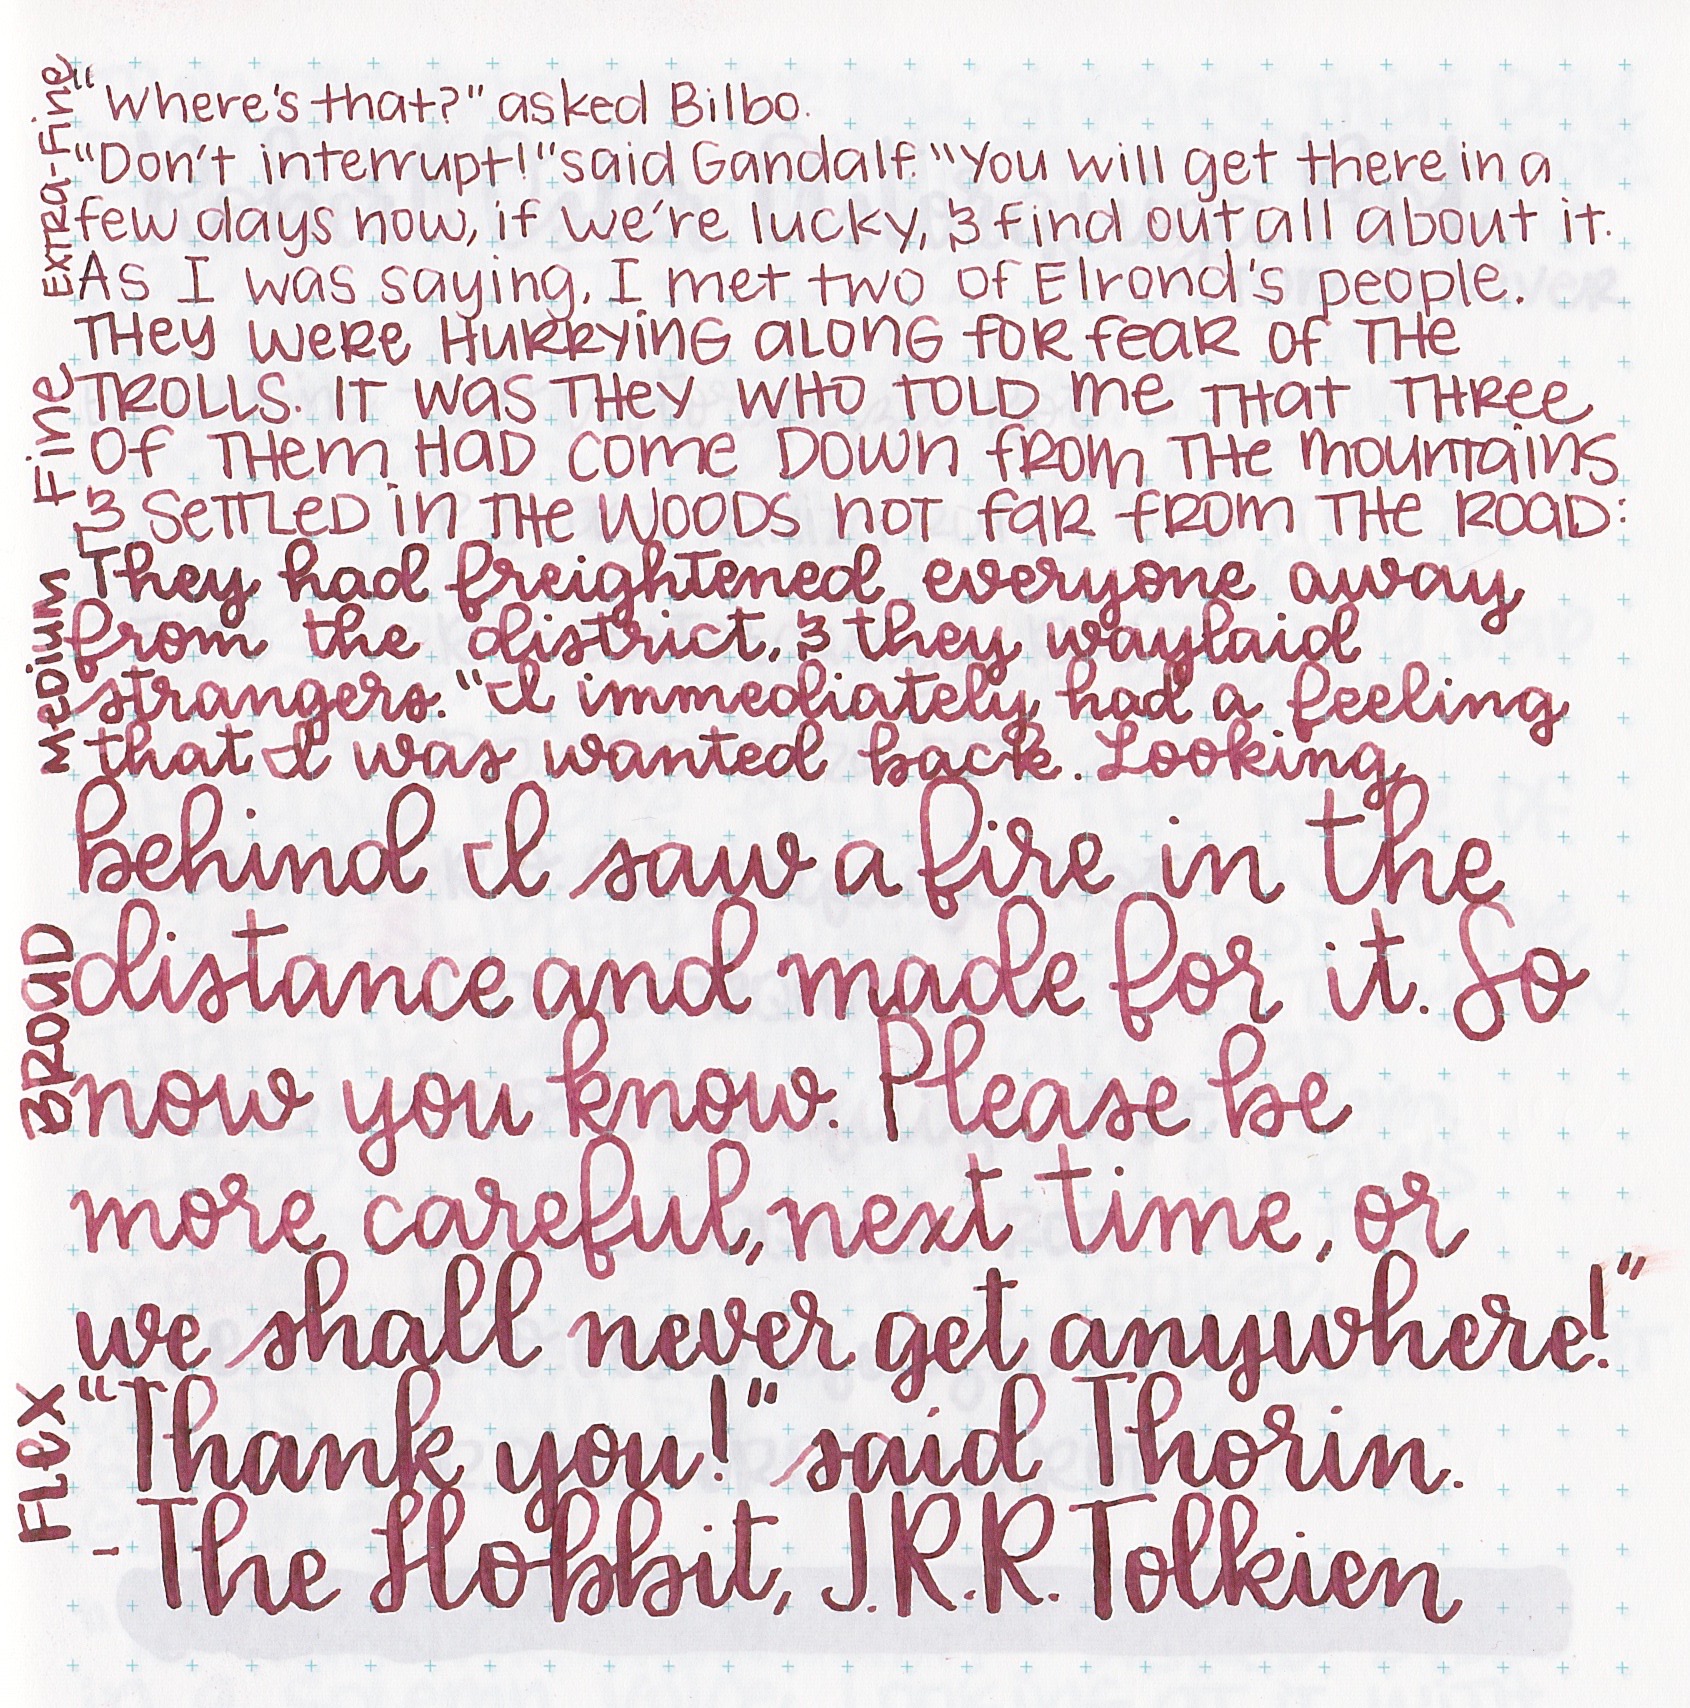 Extra-Fine
"Where's that?" asked Bilbo.
"Don't interrupt!" said Gandalf. "You will get there in a
few days now, if we're lucky, & find out all about it.
As I was saying, I met two of Elrond's people.
Fine
They were hurrying along for fear of the
trolls. It was they who told me that three
of them had come down from the mountains
& settled in the woods not far from the road:
Medium
They had freightened everyone away
from the district, & they waylaid
strangers. "I immediately had a feeling
that I was wanted back. Looking
Broad
behind I saw a fire in the
distance and made for it. So
now you know. Please be
more careful, next time, or
Flex
we shall never get anywhere!"
"Thank you!" said Thorin.
- The Hobbit, J.R.R. Tolkien